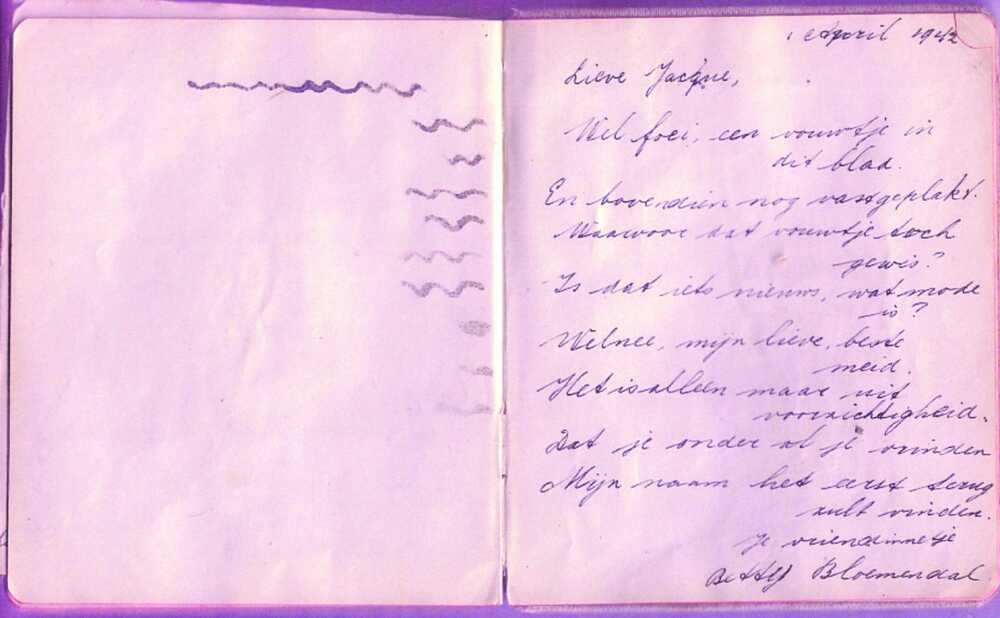 1 April 1942
Lieve Jacque,
Wel foei, een vouwtje in
dit blad.
En bovendien nog vastgeplakt.
Waarvoor dat vouwtje toch
gewis?
Is dat iets nieuws, wat mode
is?
Welnee, mijn lieve, beste
meid.
Het is alleen maar uit
voorzichtigheid.
Dat je onder al je vrinden
Mijn naam het eerst terug
zult vinden.
je vriendinnetje
Betty Bloemendal